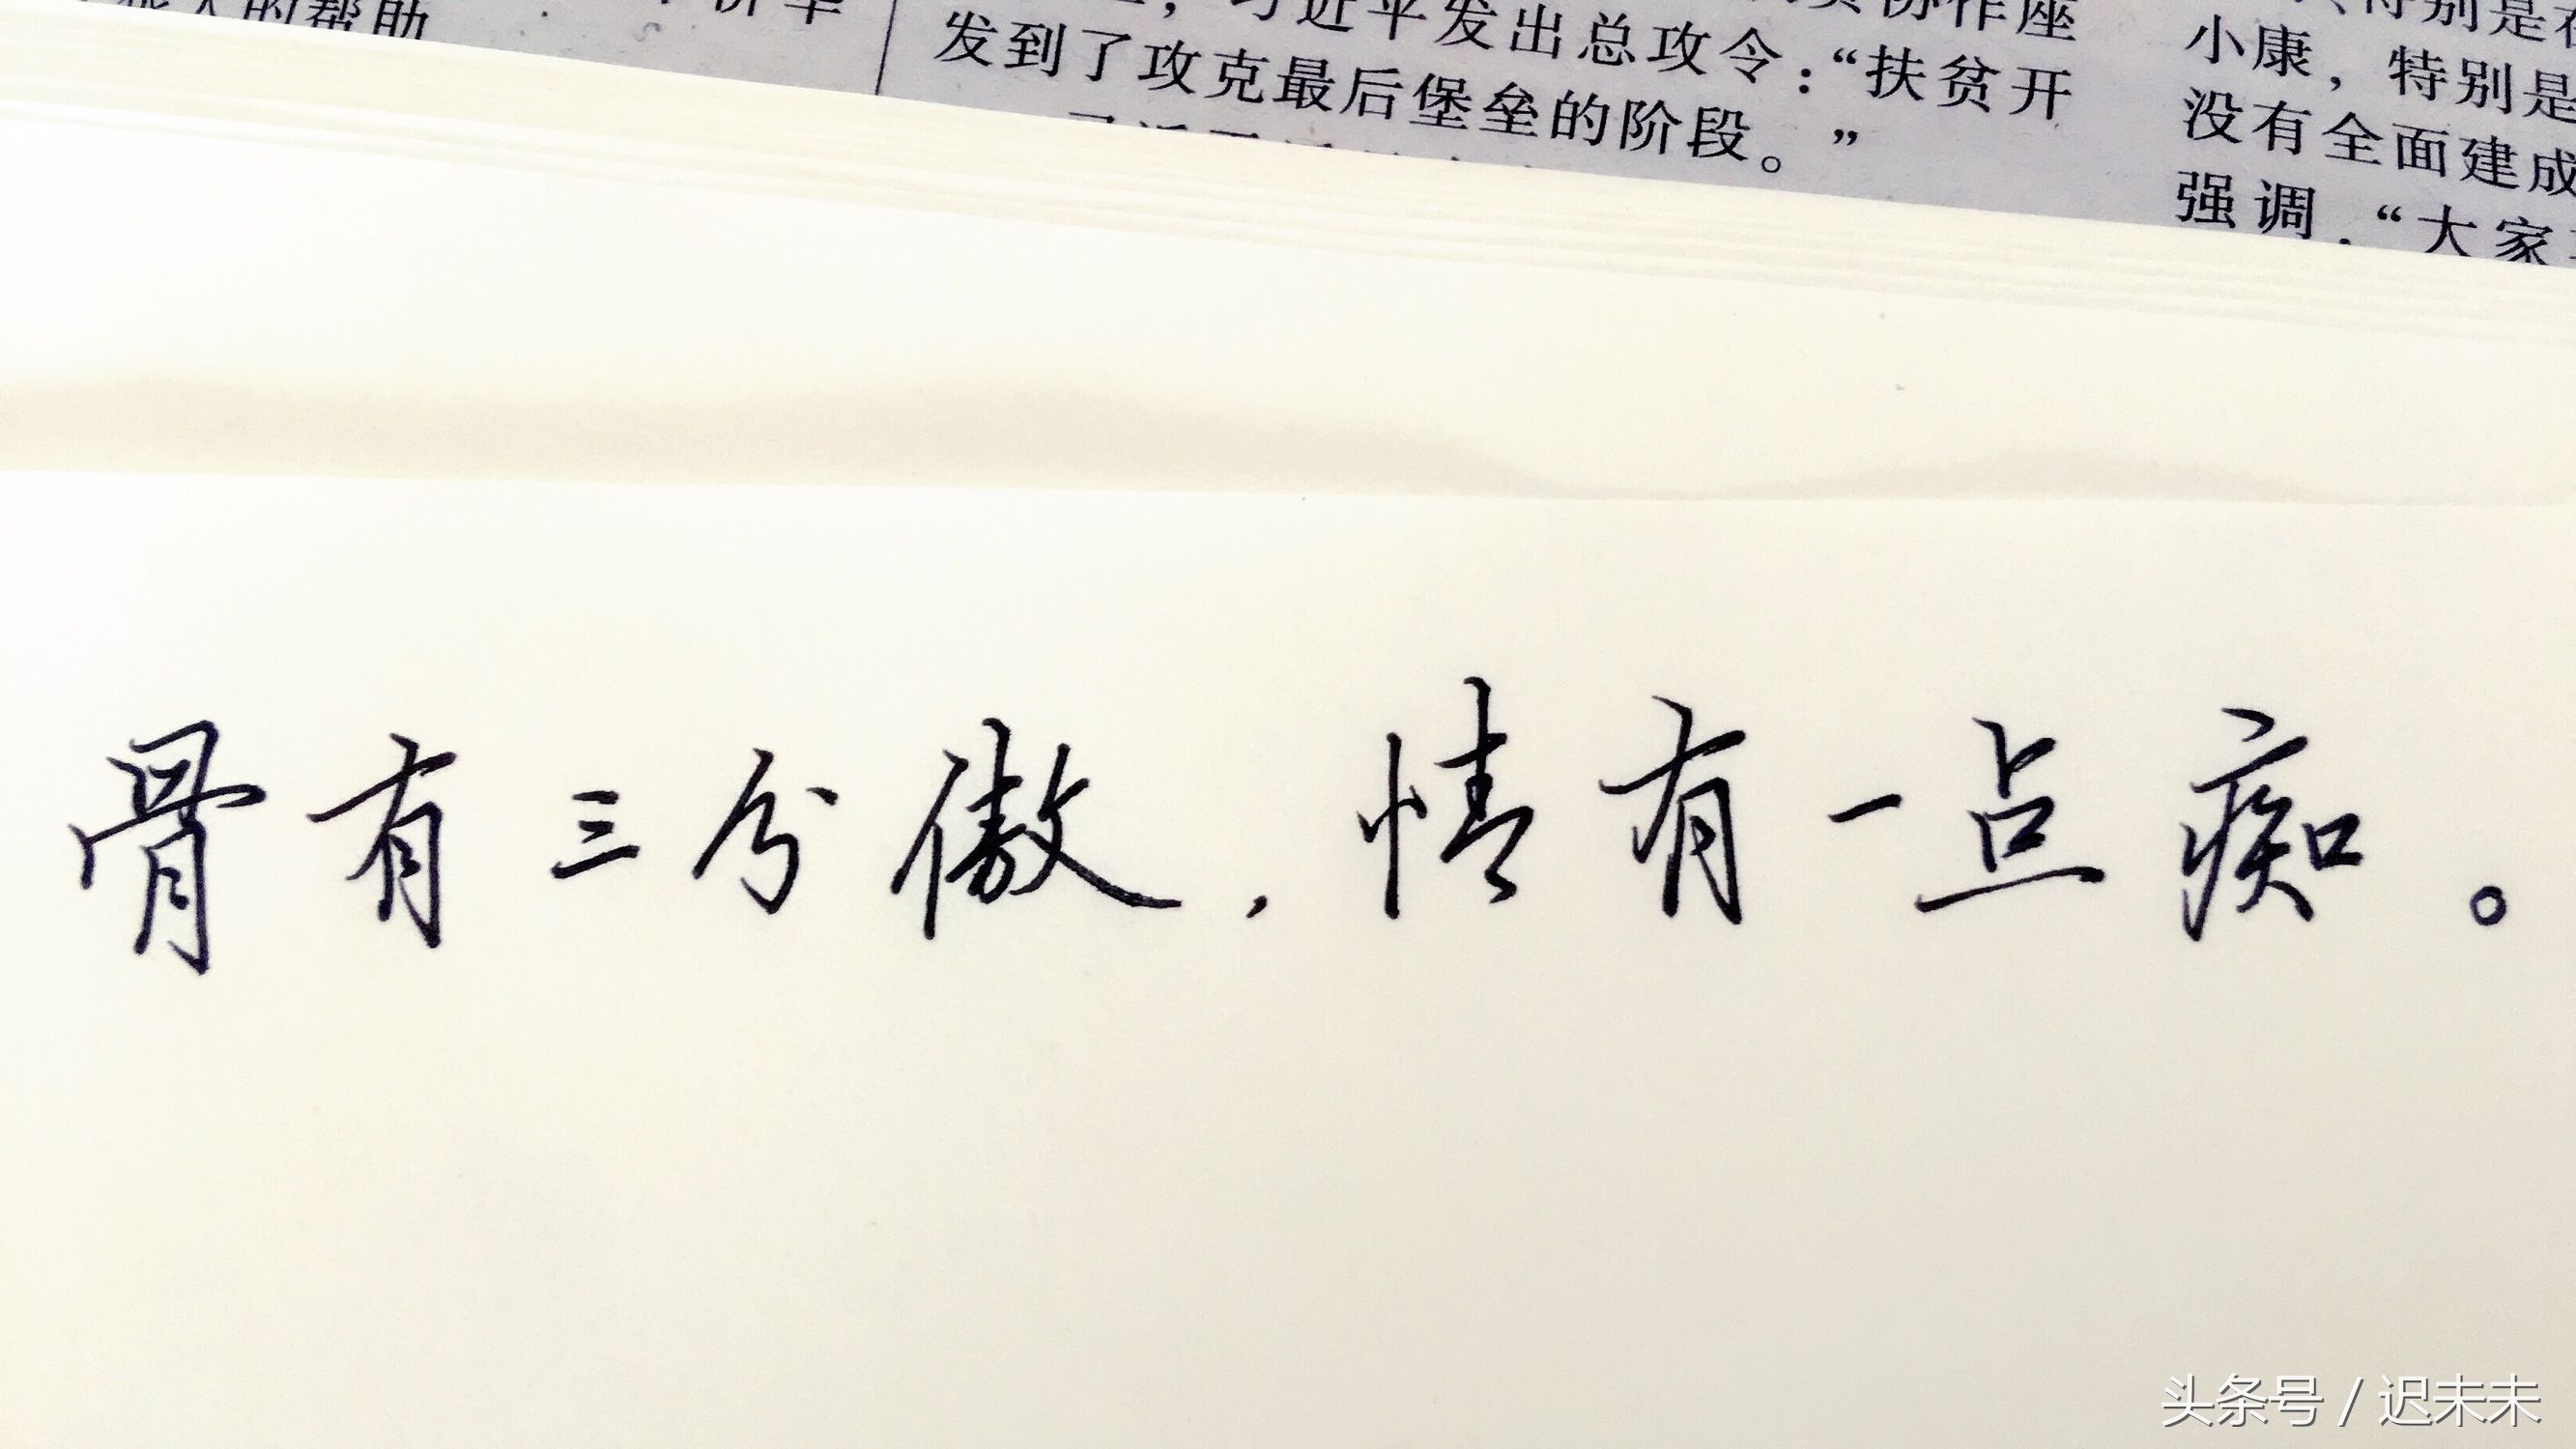 的帮助
习近平发出总攻令：“扶贫开
发到了攻克最后堡垒的阶段。”
协作座
特别是在
小康，特别是
没有全面建成
强调，“大家
骨有三分傲，情有一点痴。
头条号 / 迟未未